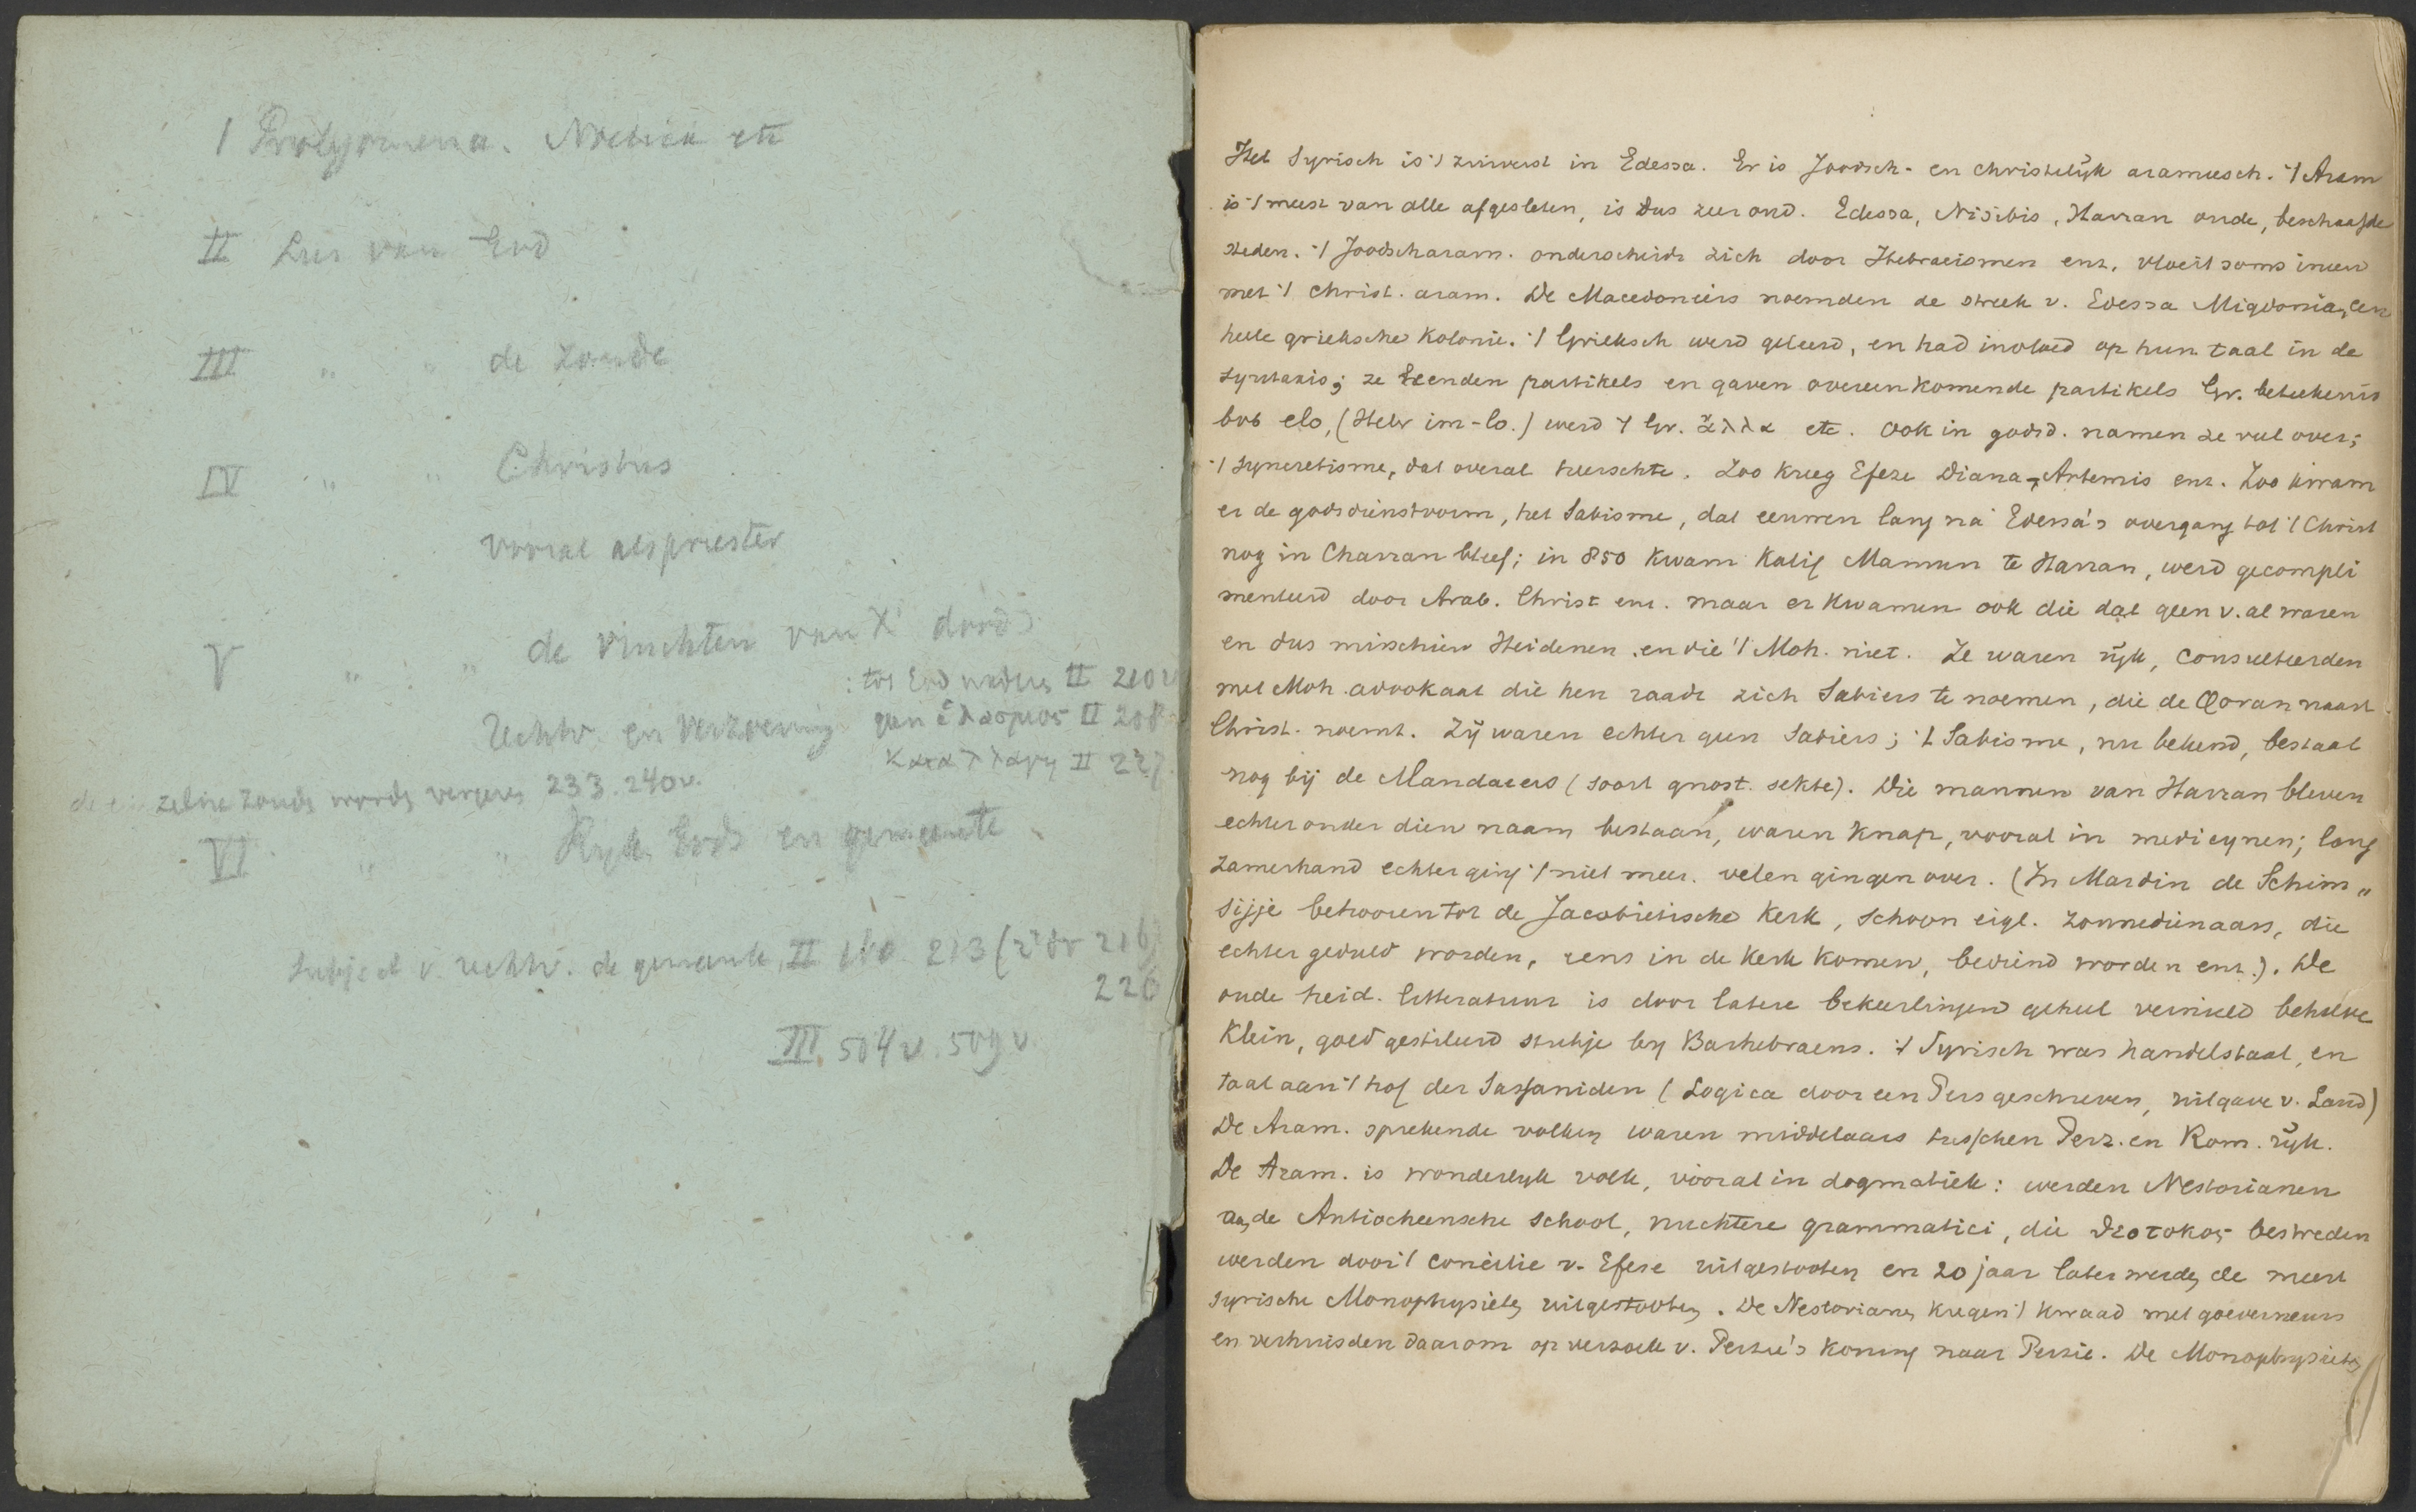 I Prolegomena. Noetiek etc
II Leer van God
III " " de zonde
IV " " Christus
vooral als priester
V " " de vruchten van X' dood
: tot God nader II 210 v
Rechtv. en verzoening geen ἱλασμος II 208
καταλλαγη II 227.
de einzelne zonde wordt vergeven 233. 240v.
VI " " Ryk Gods en gemeente
Subject v. rechtv. de gemeente, II 160. 213 (216)
226
III. 504 v. 509 v
Het Syrisch is 't zuiverst in Edessa. Er is Joodsch- en christelijk arameesch. 't Aram
is 't meest van alle afgesleten, is dus zeer oud. Edessa, Nisibis, Harran oude, beschaafde
steden. 't Joodscharam. onderscheidt zich door Hebraeismen enz. vloeit soms ineen
met 't christ. aram. De Macedoniërs noemden de streek v. Edessa Migdonia, een
heele grieksche kolonie. 't Grieksch werd geleerd, en had invloed op hun taal in de
Syntaxis; ze leenden partikels en gaven overeenkomende partikels Gr. beteekenis
bvb elo, (Hebr im-lo.) werd 't Gr. ἀλλα etc. Ook in godsd. namen ze veel over;
't syncretisme, dat overal heerschte. Zoo kreeg Efeze Diana-Artemis enz. Zoo kwam
er de godsdienstvorm, het Sabisme, dat eeuwen lang na Edessa's overgang tot 't Christ
nog in Charran bleef; in 850 kwam Kalif Mamun te Harran, werd gecompli
menteerd door Arab. Christ enz. maar er kwamen ook die dat geen v. al waren
en dus misschien Heidenen en die 't Moh. niet. Ze waren rijk, consulteerden
met Moh. advokaat die hen raadt zich Sabiers te noemen, die de Qoran naast
Christ. noemt. Zij waren echter geen Sabiers; 't Sabisme, nu bekend, bestaat
nog bij de Mandaeers (soort gnost. sekte). Die mannen van Harran bleven
echter onder dien naam bestaan, waren knap, vooral in medicynen; lang
zamerhand echter ging 't niet meer. velen gingen over. (In Mardin de Schim"
sijje behooren tot de Jacobietische kerk, schoon eigl. zonnedienaars, die
echter geduld worden, eens in de kerk komen, bediend worden enz.). De
oude heid. litteratuur is door latere bekeerlingen geheel vernield behalve
klein, goed gestileerd stukje by Barhebraeus. 't Syrisch was handelstaal, en
taal aan 't hof der Sassaniden (Logica door een Pers geschreven, uitgave v. Land)
De Aram. sprekende volken waren middelaars tusschen Perz. en Rom. rijk.
De Aram. is wonderlyk volk, vooral in dogmatiek: werden Nestorianen
de Antiocheensche school, nuchtere grammatici, die θεοτοκος bestreden
werden door 't concilie v. Efese uitgestooten en 20 jaar later werden de meest
syrische Monophysieten uitgestooten. De Nestorianen kregen 't kwaad met goeverneurs
en verhuisden daarom op verzoek v. Perzie's koning naar Perzie. De Monophysieten